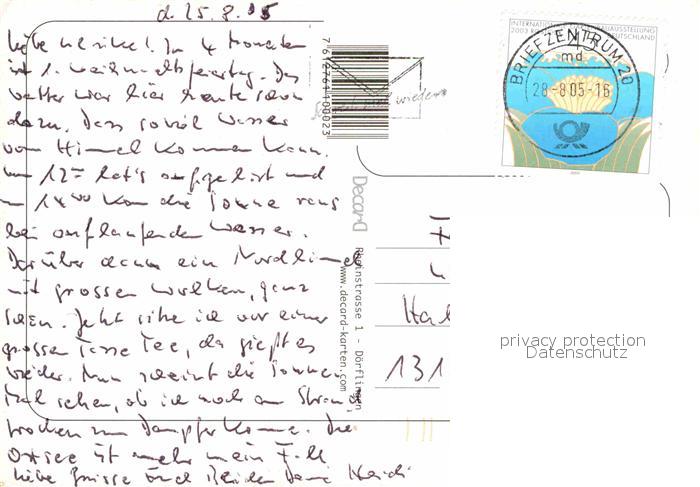 d. 25.8.05
Liebe Ulrike! In 4 Monaten
ist 1. Weihnachtsfeiertag. Das
Wetter war hier heute schon
dazu. Dass soviel Wasser
vom Himmel kommen kann.
um 12 hat's aufgeklart und
um 14 kam die Sonne raus
bei auflaufendem Wasser.
Darüber dann ein Nordhimmel
mit grossen Wolken, ganz
schön. Jetzt sitze ich vor einer
grossen Tasse Tee, da giesst es
wieder. Nun scheint die Sonne
Mal sehen, ob ich noch am Strand
trocken zum Dampfer komme. Die
Ostsee ist mehr mein Fall
Liebe Grüsse Euch Beiden Deine Heidi
7 612761 100023
Schreib mal wieder
Decard
Rheinstrasse 1 - Dörflingen
www.decard-karten.com
INTERNATIONALE
2003 DEUTSCHLAND
BRIEFZENTRUM 20
md
28-8.05-16
Hal
131
privacy protection
Datenschutz